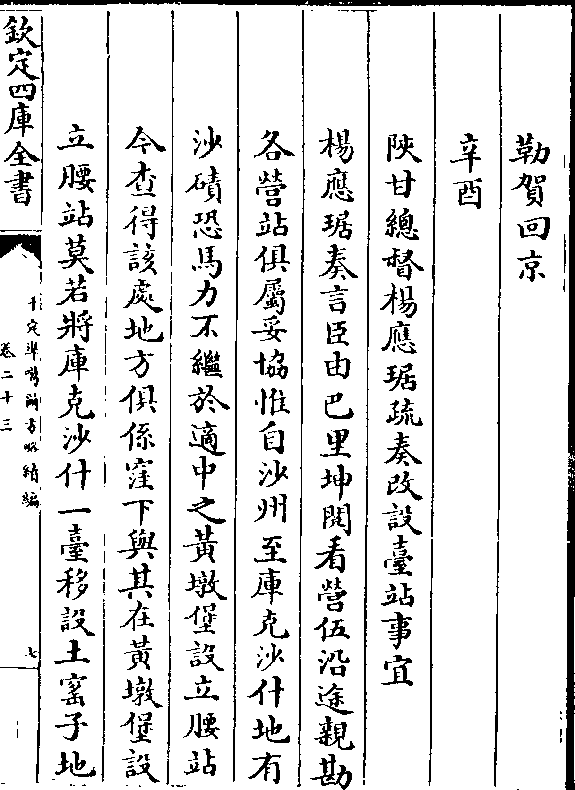 勒賀回京
辛酉
陝甘總督楊應琚疏奏改設臺站事宜
楊應琚奏言臣由巴里坤閱看營伍沿途親勘
各營站俱屬妥協惟自沙州至庫克沙什地有
沙磧恐馬力不繼於適中之黃墩堡設立腰站
今查得該處地方俱係窪下與其在黃墩堡設
立腰站莫若將庫克沙什一臺移設土窰子地
欽定四庫全書
平定準噶爾方略續編
卷二十三
七